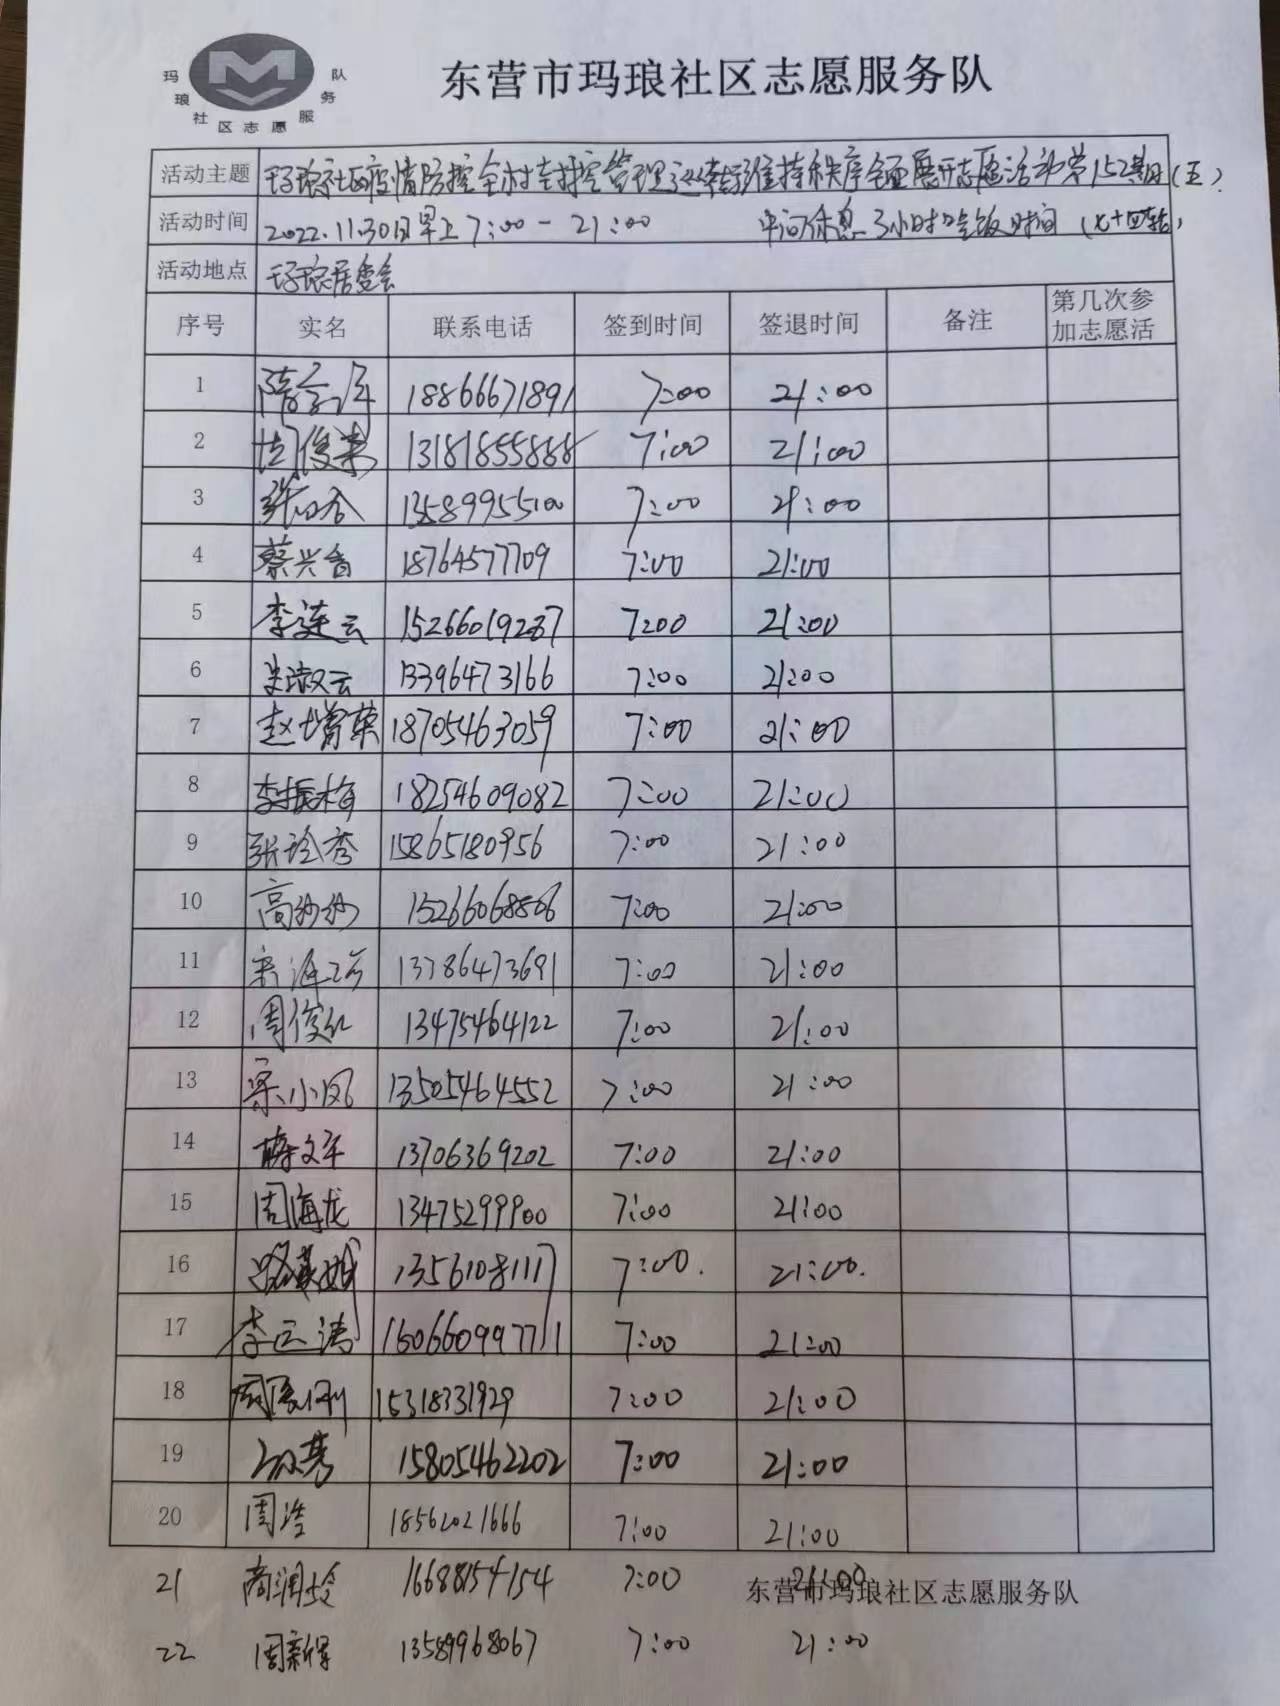 玛琅社区志愿服务队
东营市玛琅社区志愿服务队
活动主题 玛琅社区疫情防控全村封控管理 维持秩序全面展开志愿活动第152期(五)
活动时间 2022.11.30日早上7:00-21:00 中间休息3小时吃饭时间
活动地点 玛琅居委会
序号 实名 联系电话 签到时间 签退时间 备注 第几次参加志愿活
1 18866671891 7:00 21:00
2 周俊来 13181855888 7:00 21:00
3 13589955100 7:00 21:00
4 蔡兴香 18764577709 7:00 21:00
5 李莲云 15266019287 7:00 21:00
6 宋淑云 13396473166 7:00 21:00
7 赵增荣 18705463059 7:00 21:00
8 李振梅 18254609082 7:00 21:00
9 张玲秀 15865180956 7:00 21:00
10 高妙妙 15266068506 7:00 21:00
11 13786473691 7:00 21:00
12 周俊红 13475464122 7:00 21:00
13 梁小凤 13505464552 7:00 21:00
14 薛文军 13706369202 7:00 21:00
15 周海龙 13475299900 7:00 21:00
16 13561081117 7:00. 21:00.
17 李运涛 15066099771 7:00 21:00
18 15318331929 7:00 21:00
19 15805462202 7:00 21:00
20 周浩 18562021666 7:00 21:00
21 商润玲 16688154154 7:00 21:00
东营市玛琅社区志愿服务队
22 周新军 13589968067 7:00 21:00